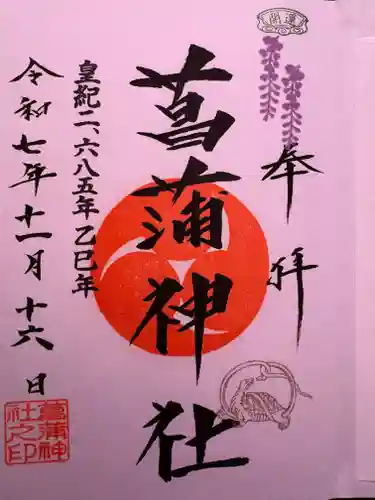 開運
奉拝
菖蒲神社
皇紀二、六八五年 乙巳年
令和七年十一月十六日
菖蒲神
社之印